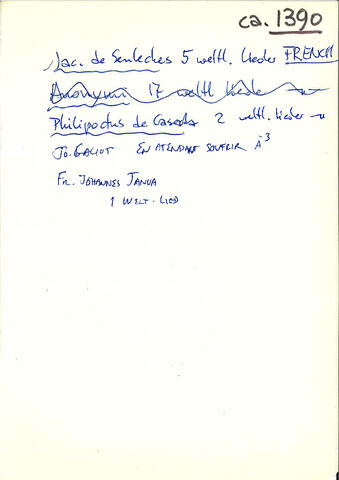 ca. 1390
Jac. de Senleches 5 weltl. Lieder FRENCH
Anonymi 17 weltl Lieder —"—
Philipoctus de Caserta 2 weltl. Lieder —"
Jo. GALIOT EN ATENDANT SOUFRIR À 3
Fr. JOHANNES JANUA
1 WELT. LIED